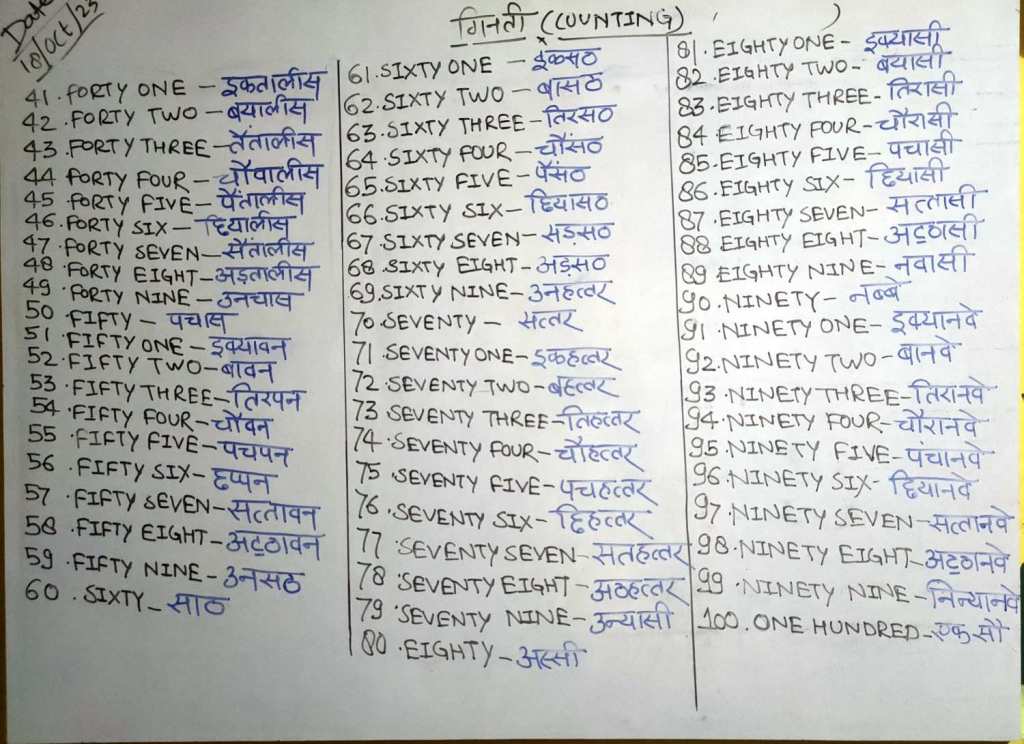 Date
18/Oct/23
गिनती (COUNTING)
41. FORTY ONE – इकतालीस
42. FORTY TWO – बयालीस
43. FORTY THREE – तैंतालीस
44 FORTY FOUR – चौवालीस
45 FORTY FIVE – पैंतालीस
46. FORTY SIX – छियालीस
47. FORTY SEVEN – सैंतालीस
48 FORTY EIGHT – अड़तालीस
49 FORTY NINE – उनचास
50 FIFTY – पचास
51 FIFTY ONE – इक्यावन
52. FIFTY TWO – बावन
53. FIFTY THREE – तिरपन
54. FIFTY FOUR – चौवन
55. FIFTY FIVE – पचपन
56. FIFTY SIX – छप्पन
57. FIFTY SEVEN – सत्तावन
58. FIFTY EIGHT – अट्ठावन
59. FIFTY NINE – उनसठ
60. SIXTY – साठ
61. SIXTY ONE – इकसठ
62. SIXTY TWO – बासठ
63. SIXTY THREE – तिरसठ
64. SIXTY FOUR – चौंसठ
65. SIXTY FIVE – पैंसठ
66. SIXTY SIX – छियासठ
67. SIXTY SEVEN – सड़सठ
68. SIXTY EIGHT – अड़सठ
69. SIXTY NINE – उनहत्तर
70. SEVENTY – सत्तर
71. SEVENTY ONE – इकहत्तर
72. SEVENTY TWO – बहत्तर
73 SEVENTY THREE – तिहत्तर
74. SEVENTY FOUR – चौहत्तर
75. SEVENTY FIVE – पचहत्तर
76. SEVENTY SIX – छिहत्तर
77. SEVENTY SEVEN – सतहत्तर
78. SEVENTY EIGHT – अठहत्तर
79. SEVENTY NINE – उन्यासी
80. EIGHTY – अस्सी
81. EIGHTY ONE – इक्यासी
82. EIGHTY TWO – बयासी
83. EIGHTY THREE – तिरासी
84 EIGHTY FOUR – चौरासी
85. EIGHTY FIVE – पचासी
86. EIGHTY SIX – छियासी
87. EIGHTY SEVEN – सत्तासी
88 EIGHTY EIGHT – अट्ठासी
89 EIGHTY NINE – नवासी
90. NINETY – नब्बे
91. NINETY ONE – इक्यानवे
92. NINETY TWO – बानवे
93. NINETY THREE – तिरानवे
94. NINETY FOUR – चौरानवे
95. NINETY FIVE – पंचानवे
96. NINETY SIX – छियानवे
97. NINETY SEVEN – सत्तानवे
98. NINETY EIGHT – अट्ठानवे
99. NINETY NINE – निन्यानवे
100. ONE HUNDRED – एक सौ